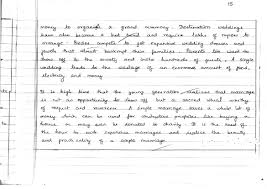 15
money to organise a grand ceremony. Destination weddings
have also become a hot trend and require lakhs of rupees to
manage. Brides compete to get expensive wedding dresses and
jewels that almost bankrupt their families. Parents like used to
show off to the society and invite hundreds of guests. A single
wedding leads to the wastage of an enormous amount of food,
electricity and money.
It is high time that the young generation realises that marriage
is not an opportunity to show off but a sacred ritual worthy
of respect and reverence. A simple marriage saves a whole lot of
money which can be used for productive purposes like buying a
house, or may even be donated to charity. It is the need of
the hour to such expensive marriages and realise the beauty
and practicality of a simple marriage.